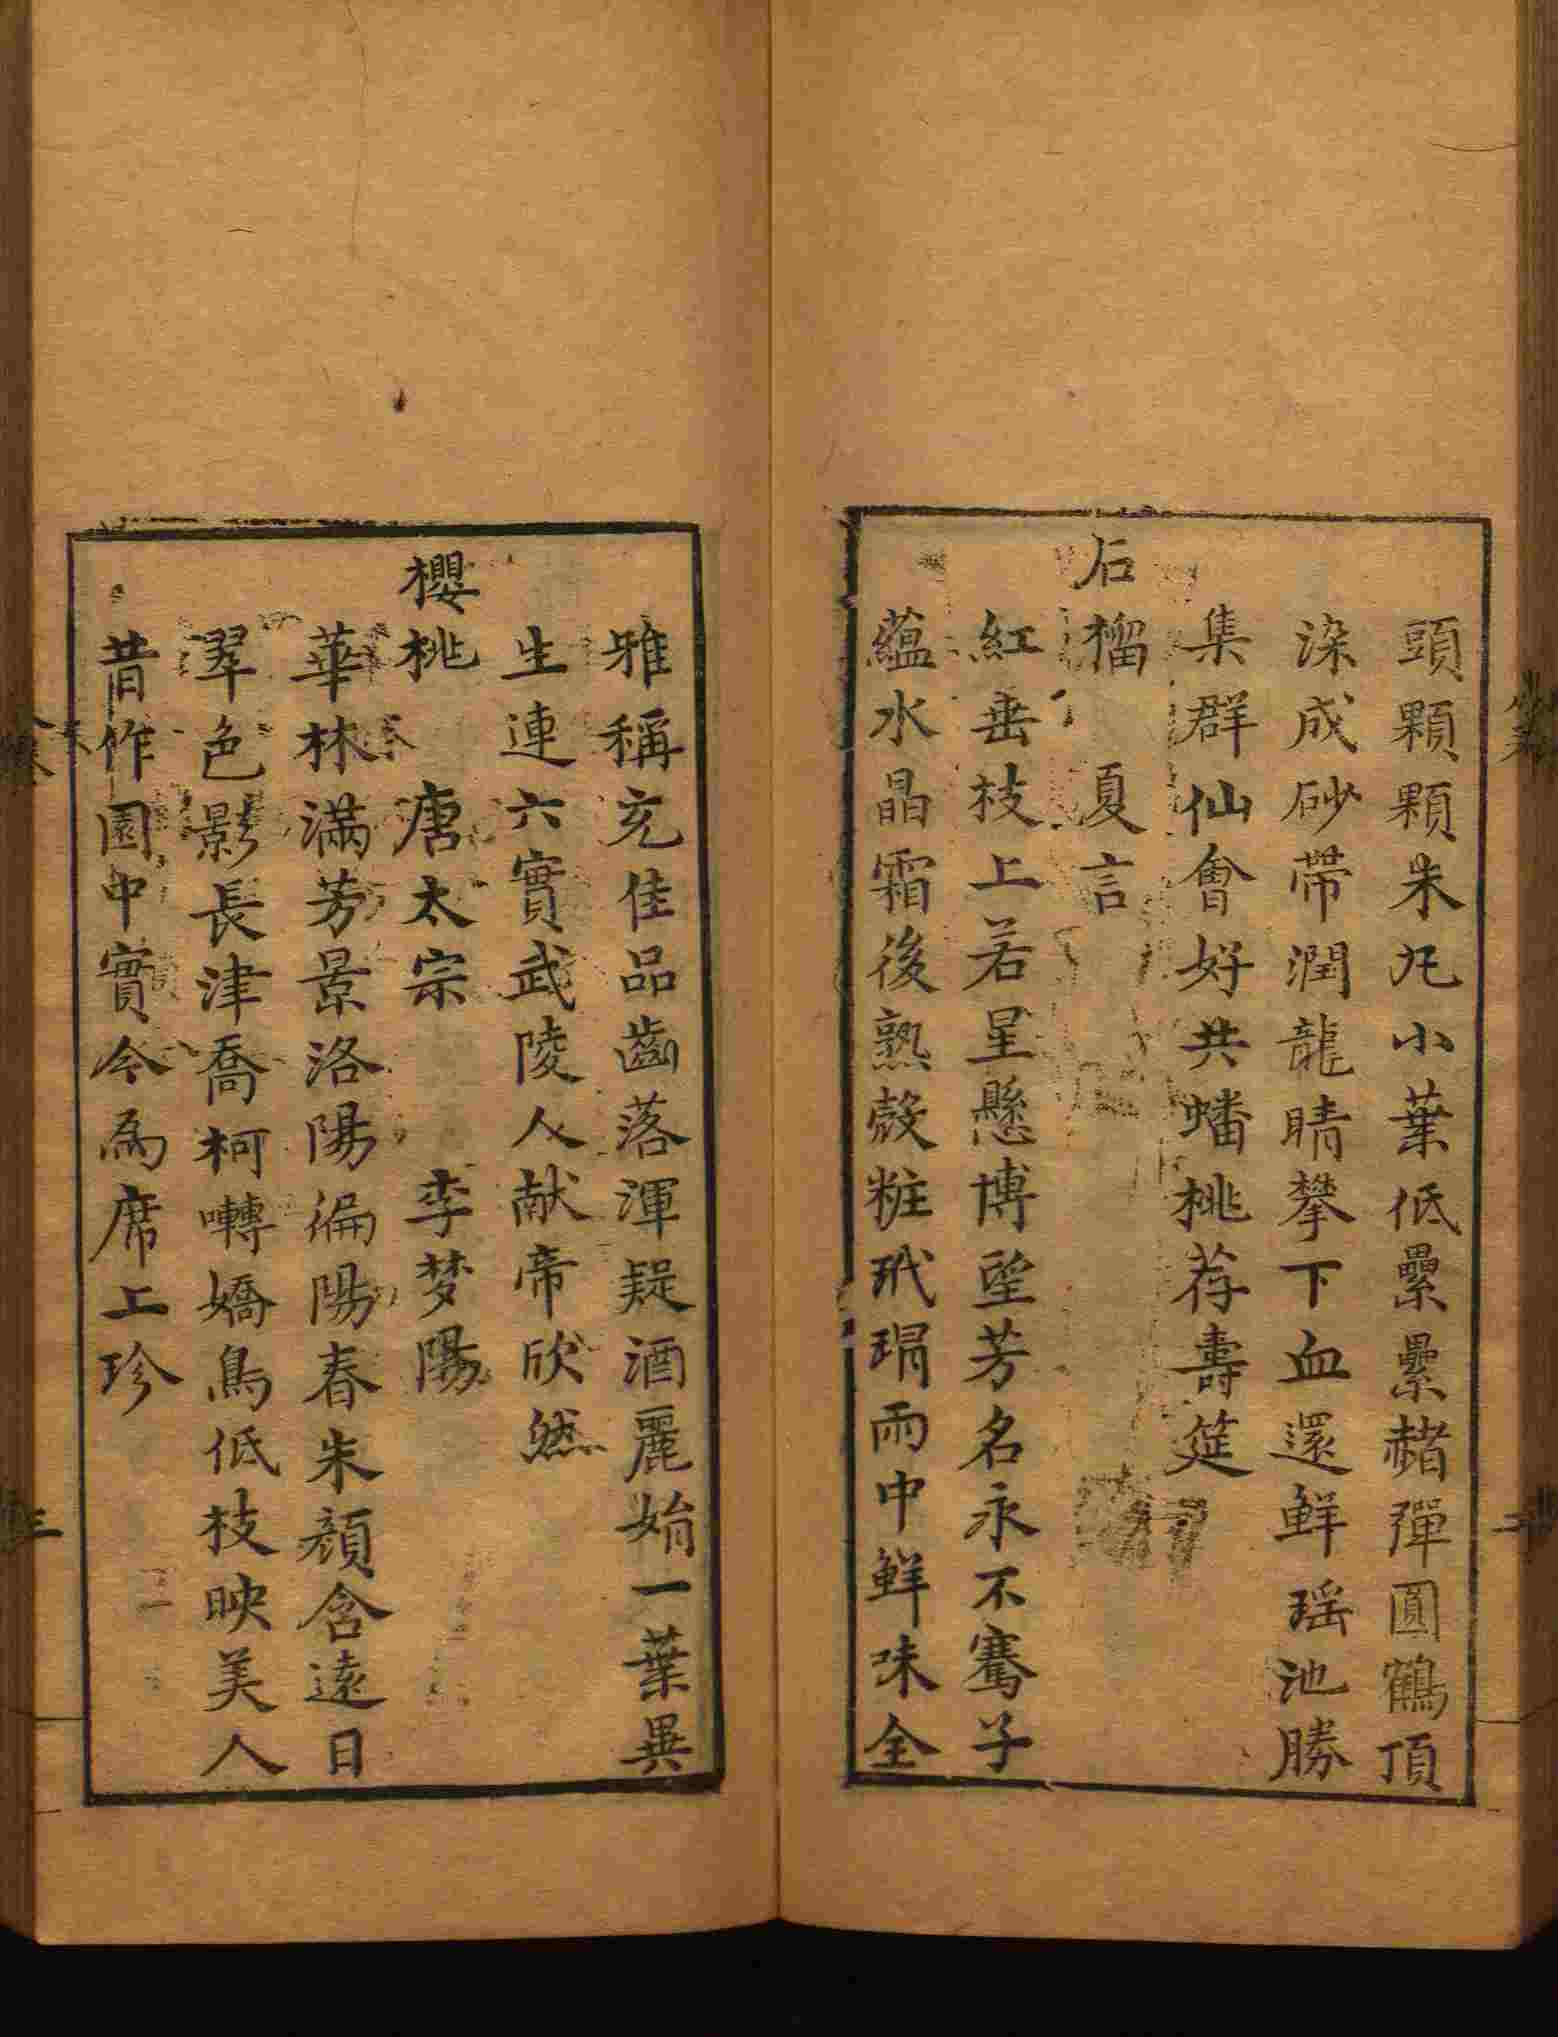 頭顆顆朱丸小葉低纍纍赭彈圓鶴頂
染成砂帶潤龍睛攀下血還鮮瑶池勝
集群仙會好共蟠桃荐壽筵
石榴　夏言
紅垂枝上若星懸博望芳名永不騫子
蘊水晶霜後熟殼粧玳瑁雨中鮮味全
雅稱充佳品齒落渾疑酒麗姢一葉異
生連六實武陵人献帝欣然
櫻桃　唐太宗　李梦陽
華林滿芳景洛陽徧陽春朱顔含遠日
翠色影長津喬柯囀嬌鳥低枝映美人
昔作園中實今為席上珍
二
三